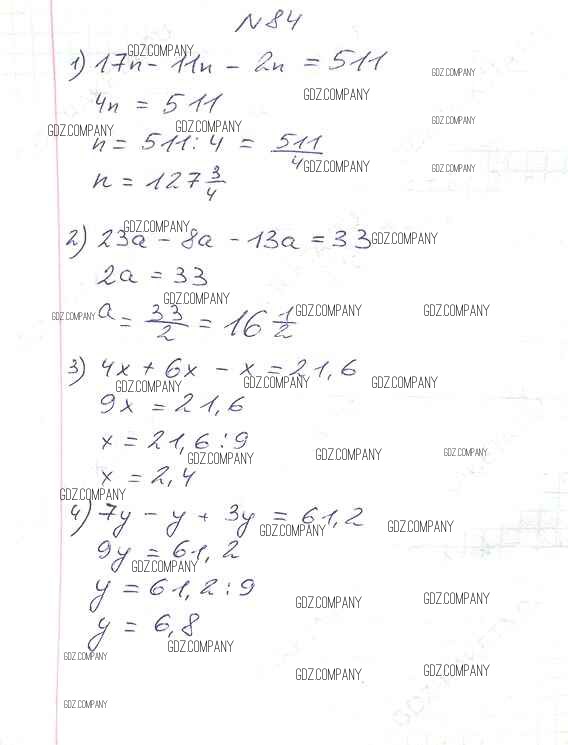 N84
GDZ.COMPANY
1) 17n - 11n - 2n = 511
GDZ.COMPANY
GDZ.COMPANY
4n = 511
GDZ.COMPANY
GDZ.COMPANY GDZ.COMPANY
n = 511 : 4 = 511/4
GDZ.COMPANY GDZ.COMPANY
n = 127 3/4
GDZ.COMPANY
2) 23a - 8a - 13a = 33
GDZ.COMPANY
2a = 33
GDZ.COMPANY
GDZ.COMPANY GDZ.COMPANY GDZ.COMPANY
a = 33/2 = 16 1/2
3) 4x + 6x - x = 21,6
GDZ.COMPANY GDZ.COMPANY GDZ.COMPANY
9x = 21,6
x = 21,6 : 9
GDZ.COMPANY GDZ.COMPANY GDZ.COMPANY
x = 2,4
GDZ.COMPANY
4) 7y - y + 3y = 61,2
GDZ.COMPANY GDZ.COMPANY
9y = 61,2
GDZ.COMPANY
y = 61,2 : 9
GDZ.COMPANY GDZ.COMPANY
y = 6,8
GDZ.COMPANY
GDZ.COMPANY
GDZ.COMPANY GDZ.COMPANY
GDZ.COMPANY